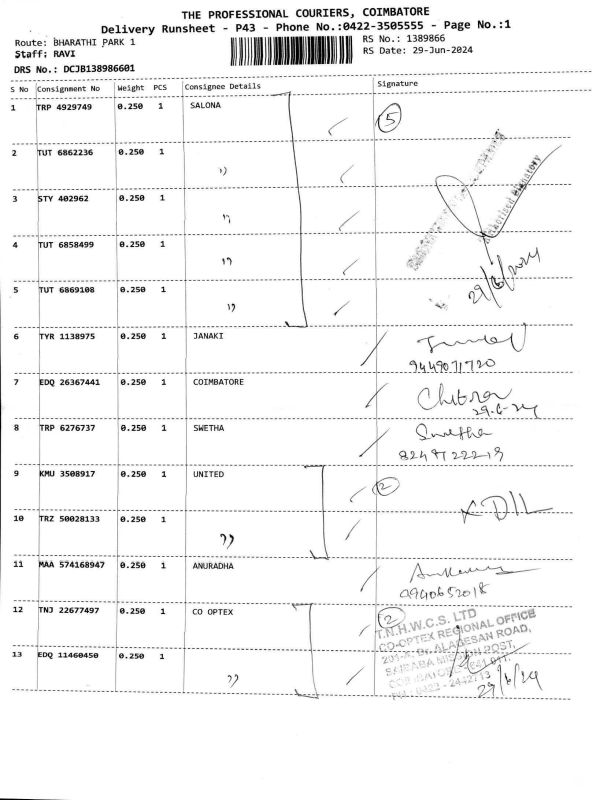 THE PROFESSIONAL COURIERS, COIMBATORE
Delivery Runsheet - P43 - Phone No.:0422-3505555 - Page No.:1
Route: BHARATHI PARK 1
RS No.: 1389866
Staff: RAVI
RS Date: 29-Jun-2024
DRS No.: DCJB138986601
S No Consignment No Weight PCS Consignee Details Signature
1 TRP 4929749 0.250 1 SALONA 5
2 TUT 6862236 0.250 1 ''
3 STY 402962 0.250 1 ''
Authorised Signatory
4 TUT 6858499 0.250 1 ''
29/6/2024
5 TUT 6869108 0.250 1 ''
6 TYR 1138975 0.250 1 JANAKI
9449071720
7 EDQ 26367441 0.250 1 COIMBATORE Chitra
29-6-24
8 TRP 6276737 0.250 1 SWETHA Swetha
9 KMU 3508917 0.250 1 UNITED 2
10 TRZ 50028133 0.250 1 ''
11 MAA 574168947 0.250 1 ANURADHA
9940652018
12 TNJ 22677497 0.250 1 CO OPTEX 2
T.N.H.W.C.S. LTD
CO-OPTEX REGIONAL OFFICE
ALAGESAN ROAD,
SAIBABA MISSION POST,
13 EDQ 11460450 0.250 1 ''
29/6/24